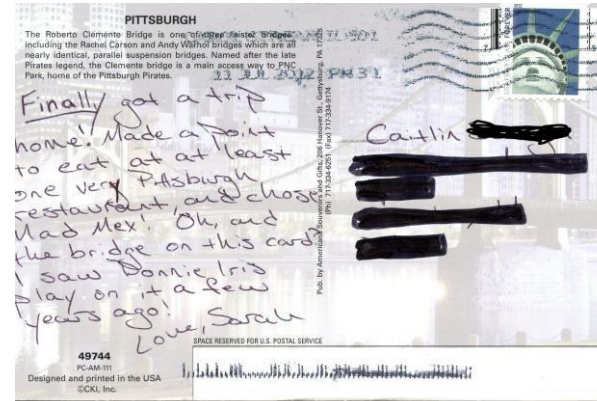 PITTSBURGH
The Roberto Clemente Bridge is one of three sister bridges,
including the Rachel Carson and Andy Warhol bridges which are all
nearly identical, parallel suspension bridges. Named after the late
Pirates legend, the Clemente bridge is a main access way to PNC
Park, home of the Pittsburgh Pirates.
11 JUL 2012 PM 3 L
FOREVER
Finally got a trip
home! Made a point
to eat at at least
one very Pittsburgh
restaurant, and chose
Mad Mex! Oh, and
the bridge on this card?
I saw Donnie Iris
play on it a few
years ago!
Love, Sarah
Caitlin
Pub. by Americana Souvenirs and Gifts, 206 Hanover St., Gettysburg, PA 17325
(Ph) 717-334-6251 (Fax) 717-334-9174
SPACE RESERVED FOR U.S. POSTAL SERVICE
49744
PC-AM-111
Designed and printed in the USA
©CKI, Inc.